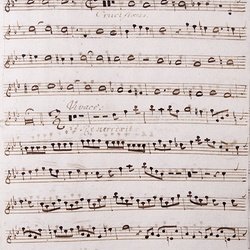 Crucifixus.
Vivace.
Et Resurrexit